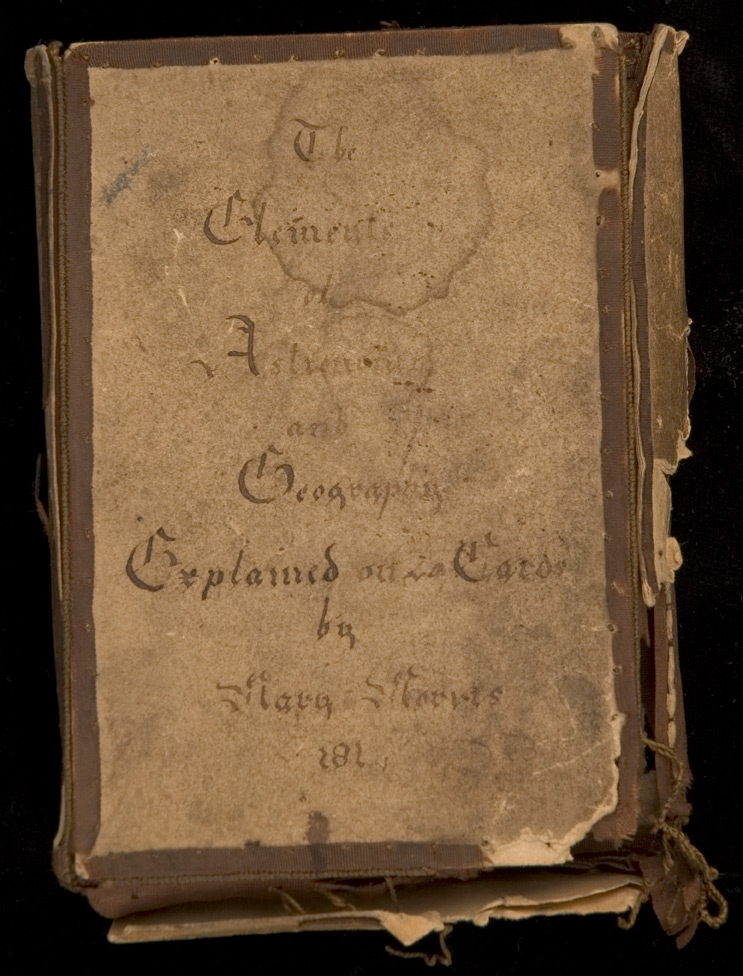 The
Elements
of
Astronomy
and
Geography
Explained on Cards
by
Mary Norris